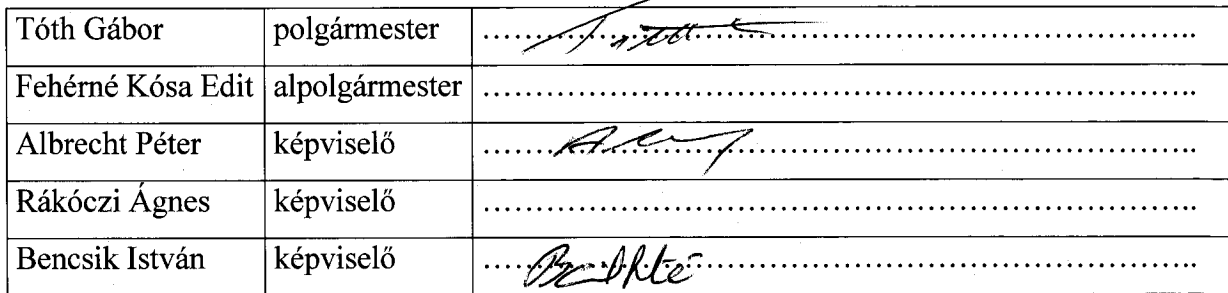 Tóth Gábor polgármester ........................................................
Fehérné Kósa Edit alpolgármester ........................................................
Albrecht Péter képviselő ........................................................
Rákóczi Ágnes képviselő ........................................................
Bencsik István képviselő ........................................................